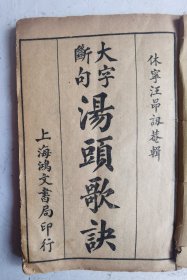 休寧汪昂訒菴輯
大字
斷句
湯頭歌訣
上海鴻文書局印行